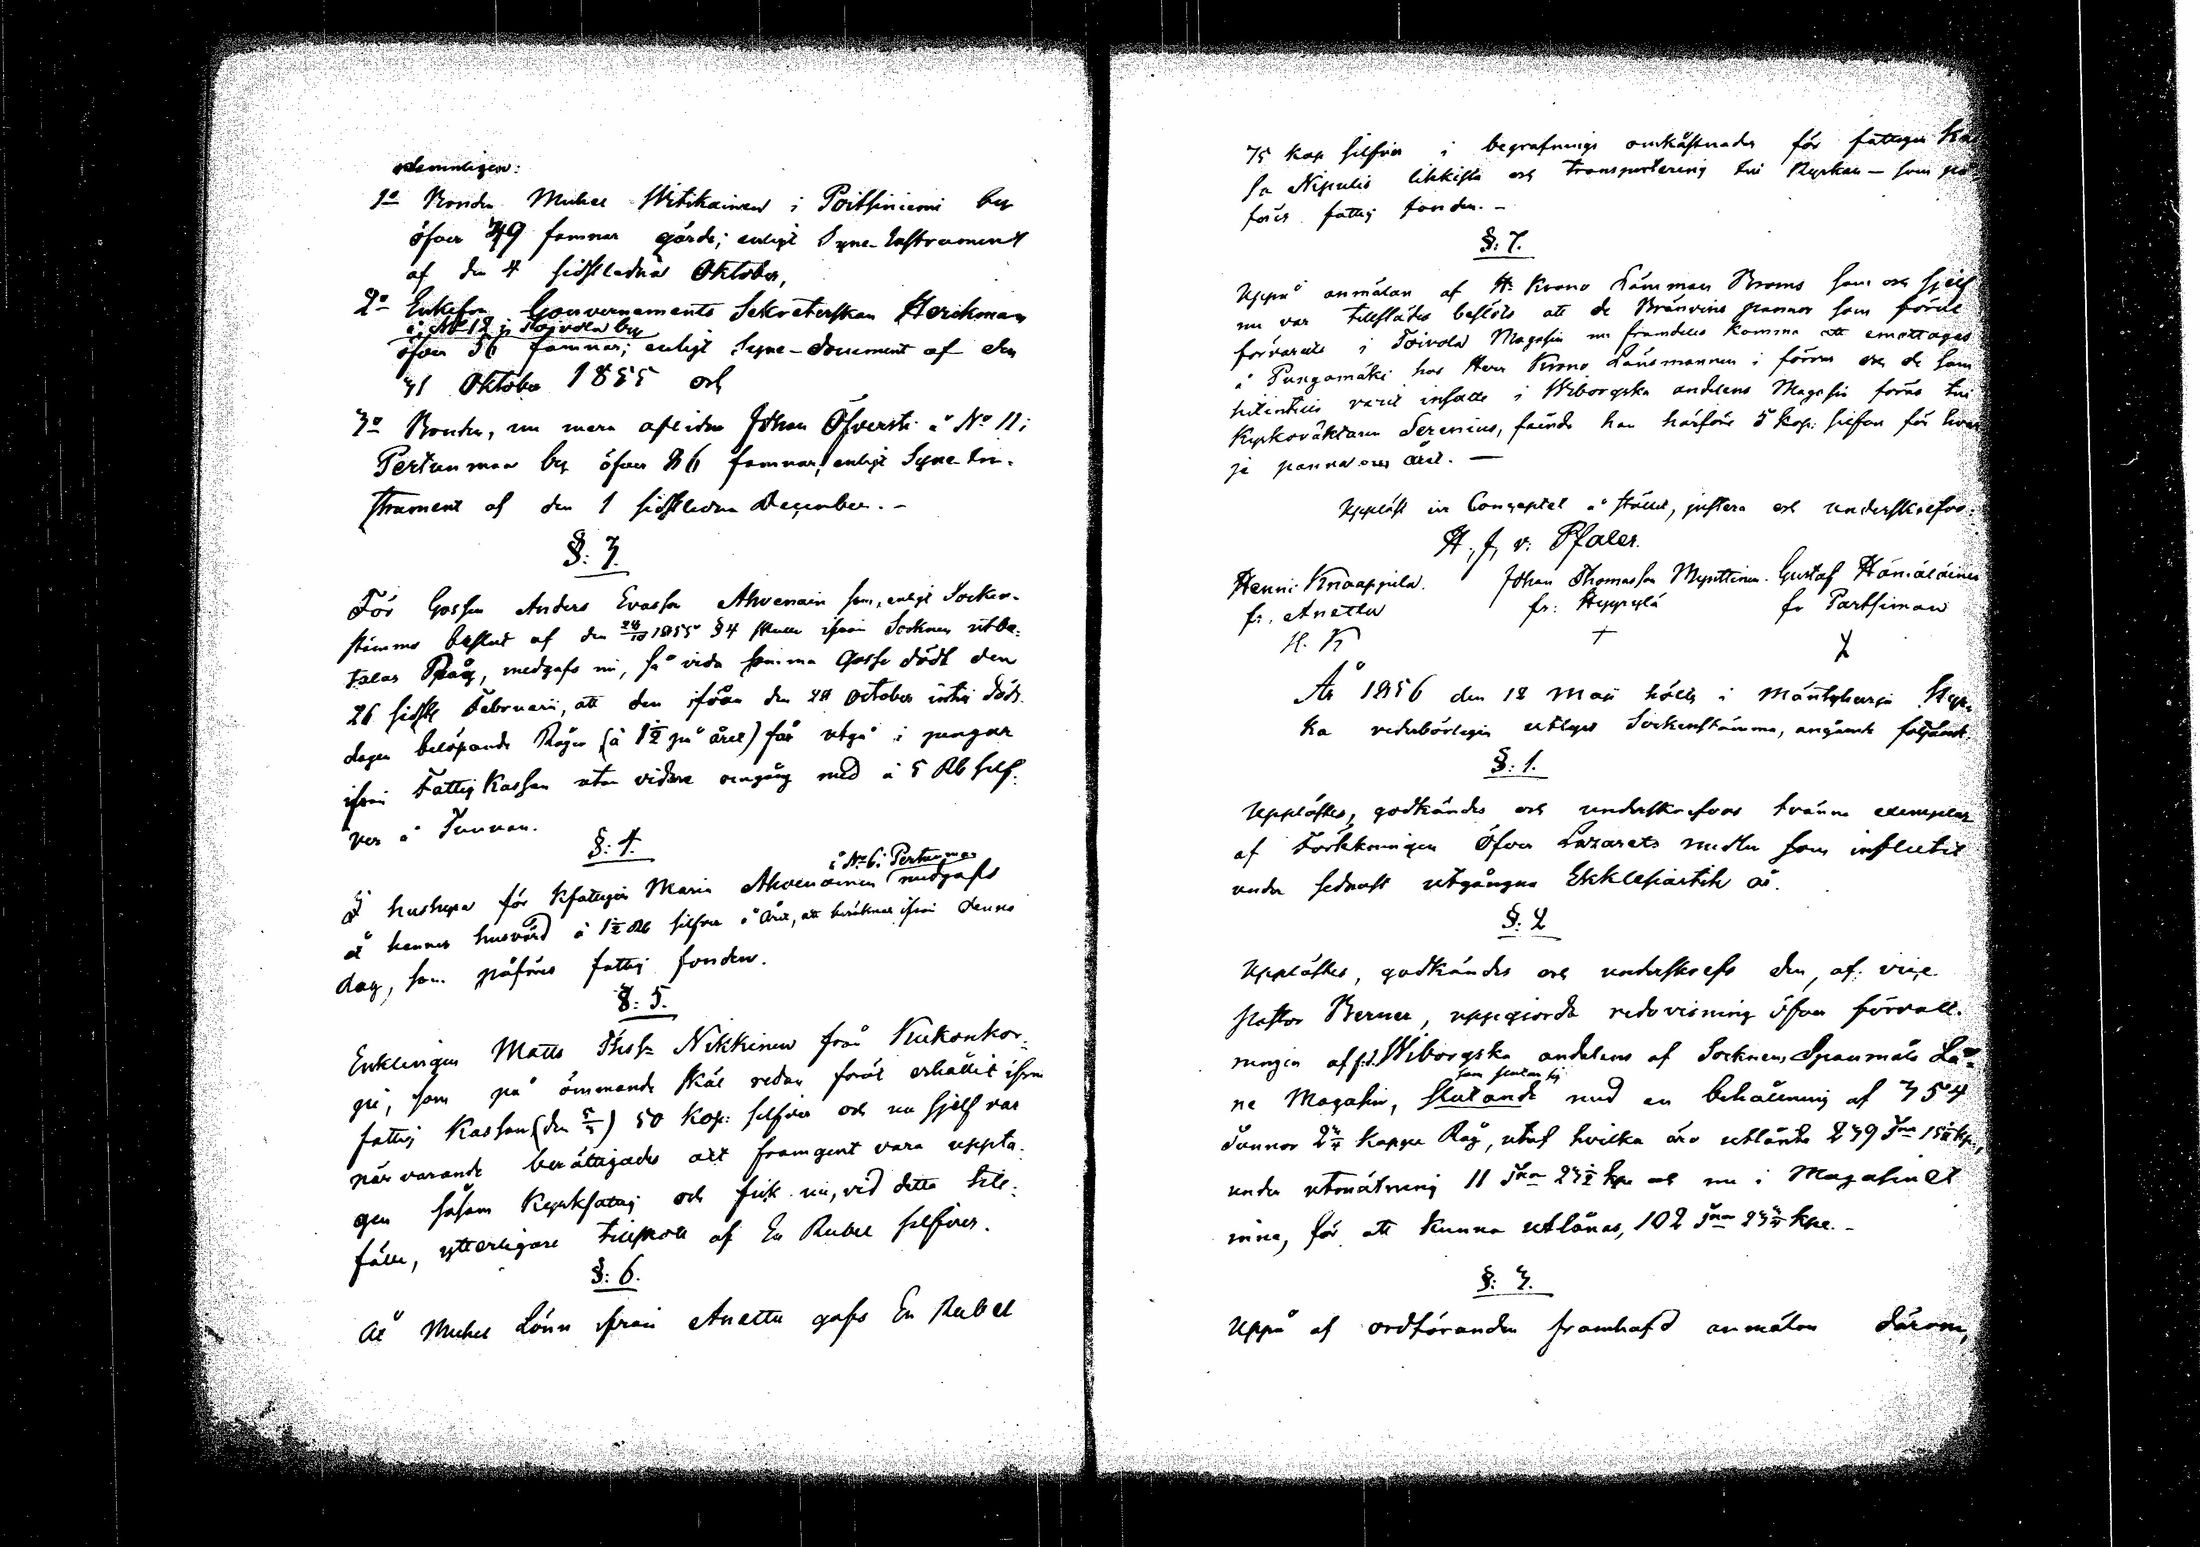 nemnligen:
1o Bonden Michel Wirtikainen i Poitsiniemi by
öfver 349 famnar gärde; enligt Syne-Instrument
af den 4 sidstledne Oktober,
2o Enkefru Gouvernements Sekreterskan Herckman
i No 12 i Toivola by
öfver 36 famnar; enligt Syne-document af den
31 Oktober 1855 och
3o Bonden, nu mera aflidne Johan Öfversti å No 11 i
Pertunmaa by öfver 86 famnar, enligt Syne In-
strument af den 1 sidstledne December. -
§: 3.
För Gossen Anders Evasson Ahvenain som, enligt Socken-
stämmo beslut af den 28/10 1855 § 4 skulle ifrån Socknen utbe-
talas Råg, medgafs nu, så vida samma Gosse dödt den
26 sidstl. Februari, att den ifrån den 28 October intill döds-
dagen belöpande Rågen (à 1 1/2 på året) får utgå i pengar
ifrån Fattig Kassan utan vidare omgång med à 5 Rb silf-
ver å Tunnan.
§: 4.
å No 6 i Pertunmaa
I hushyra för Kfattigen Maria Ahvenainen medgafs
åt hennes husvärd à 1 1/2 Rb silfver å året, att beräknas ifrån denna
dag, som påföres fattig fonden.
§: 5.
Enklingen Matts Thsson Nikkinen från Kukonkor-
pi, som på ömmande skäl redan förut erhållit ifrån
fattig Kassan (den 5/5) 50 kop: silfver och nu sjelf var
närvarande berättigades att framgent vara uppta-
gen såsom Kyrkfattig och fick nu, vid detta till-
fälle, ytterligare tillskott af En Rubel silfver.
§: 6.
At Michel Lönn ifrån Anettu gafs En Rubel
75 kop silfver i begrafnings omkåstnader för fattigen Ka
sa Nipulis likkista och transportering till Kyrkan - som på-
föres fattig fonden. -
§: 7.
Uppå anmälan af Hr Krono Länsman Broms som och sjelf
nu var tillstädes beslöts att de Bränvins pannor som förut
förvarats i Toivola Magasin nu framdeles komma att emottagas
å Pungamäki hos Herr Krono Länsmannen i förvar och de som
hitintills varit insatte i Wiborgska andelens Magasin föras till
Kyrkoväktaren Serenius, faende han härföre 5 kop: silfver för hvar
je panna om året. -
Uppläst ur Conceptet å stället, justera och underskrefvo:
H. J. v: Pfaler.
Henric Knaappila. Johan Thomasson Mynttinen. Gustaf Hämäläinen
fr. Anettu fr: Hyppylä fr Partsimaa
H. K +
År 1856 den 18 Maji hölls i Mäntyharju Kyr-
ka vederbörligen utlyst Sockenstämma, angående följande
§: 1.
Upplästes, godkändes och underskrefvos tvänne exemplar
af Förtekningen Öfver Lazarets medlen som influtit
under sednast utgångna Ekklesiastik år.
§: 2
Upplästes, godkändes och underskrefs den, af vice
Pastor Berner, uppgjorda redovisning öfver förvalt-
ningen af f.d. Wiborgska andelens af Socknens Spanmåls Lå-
som slutar sig
ne Magasin, slutande med en behållning af 354
Tunnor 2 3/4 kappe Råg, utaf hvilka äro utlånte 239 Tnr 15 1/2 kp.,
under utmätning 11 Tnr 23 1/2 kpe och nu i Magasinet
inne, för att kunna utlånas, 102 Tnr 23 3/4 kpe. -
§: 3.
Uppå af ordföranden framhafd anmälan därom,